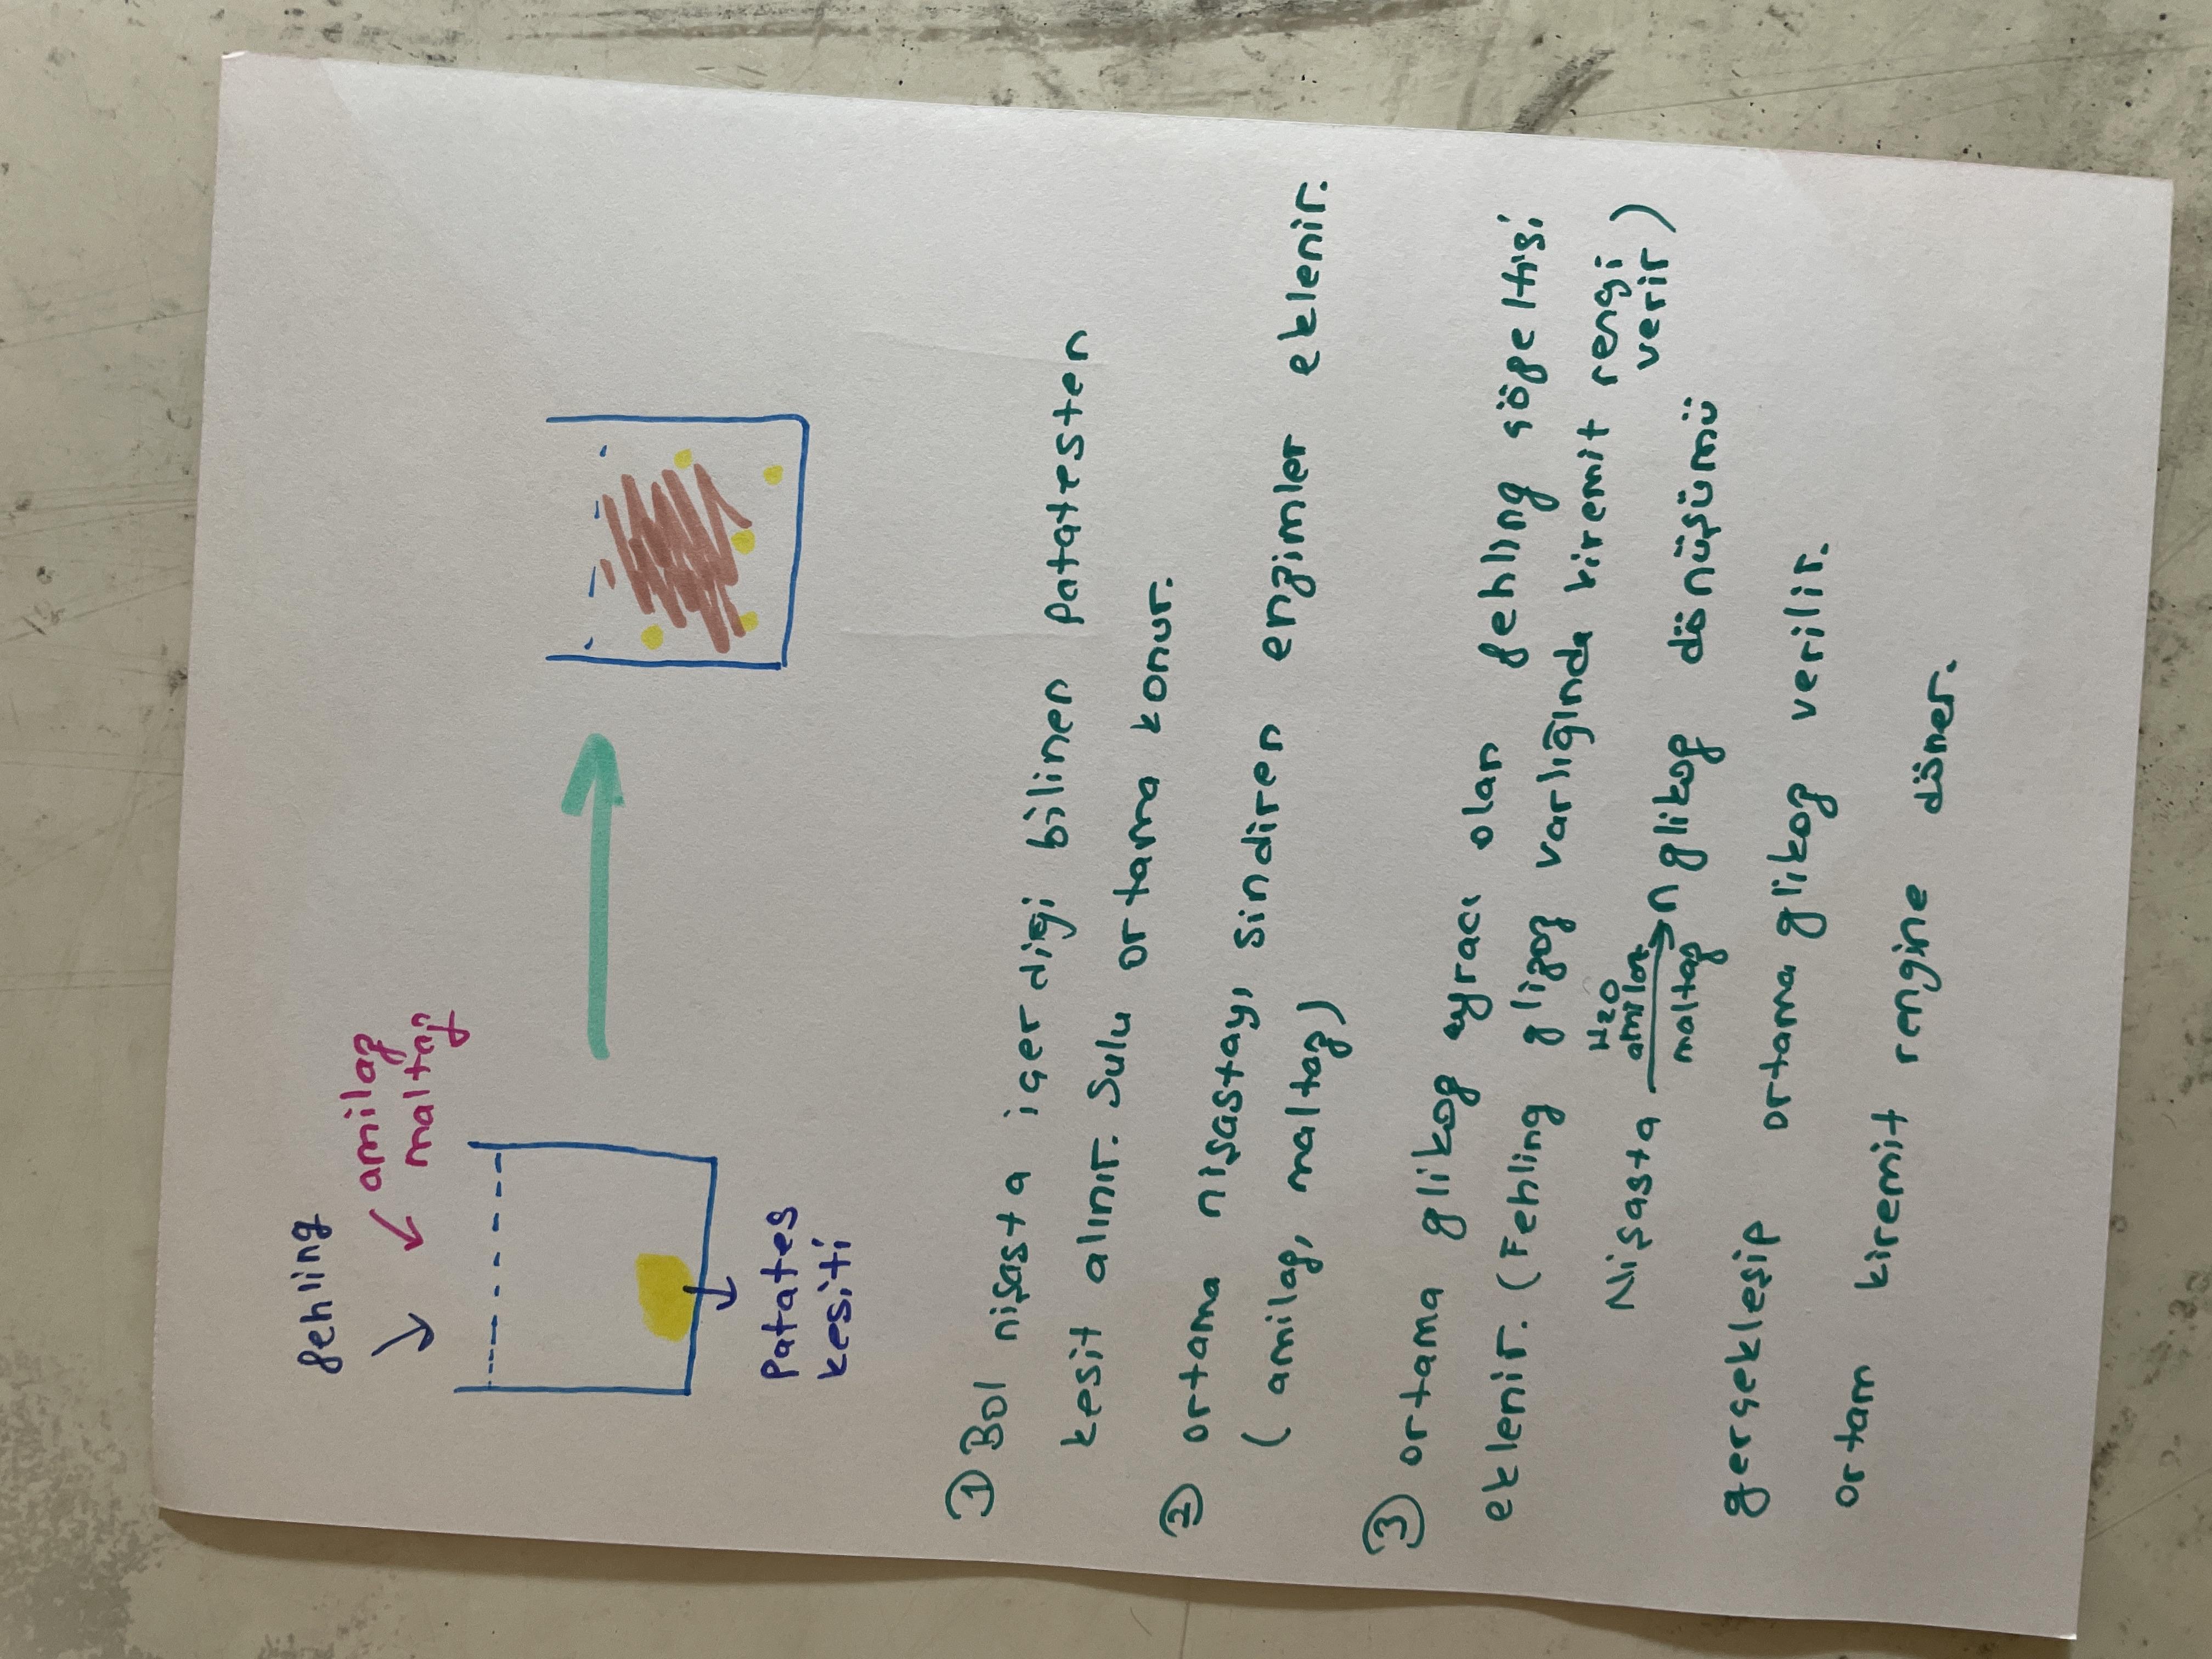 fehling
amilaz
maltaz
Patates
kesiti
① Bol nişasta içerdiği bilinen patatesten
kesit alınır. Sulu ortama konur.
② ortama nişastayı sindiren enzimler eklenir.
(amilaz, maltaz)
③ ortama glikoz ayracı olan fehling çözeltisi
eklenir. (Fehling glizoz varlığında kiremit rengi
verir)
H2O
amilaz
Nişasta → n glikoz dönüşümü
maltaz
gerçekleşip ortama glikoz verilir.
ortam kiremit rengine döner.